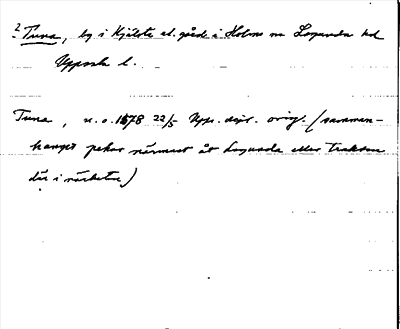 ? Tuna, by i Kjälsta el. gård i Holms sn Lagunda hd
Uppsala l.
Tuna, u.o. 1678 22/5 Upps. dipl. orig. (samman-
hanget pekar närmast åt Lagunda eller trakten
där i närheten)